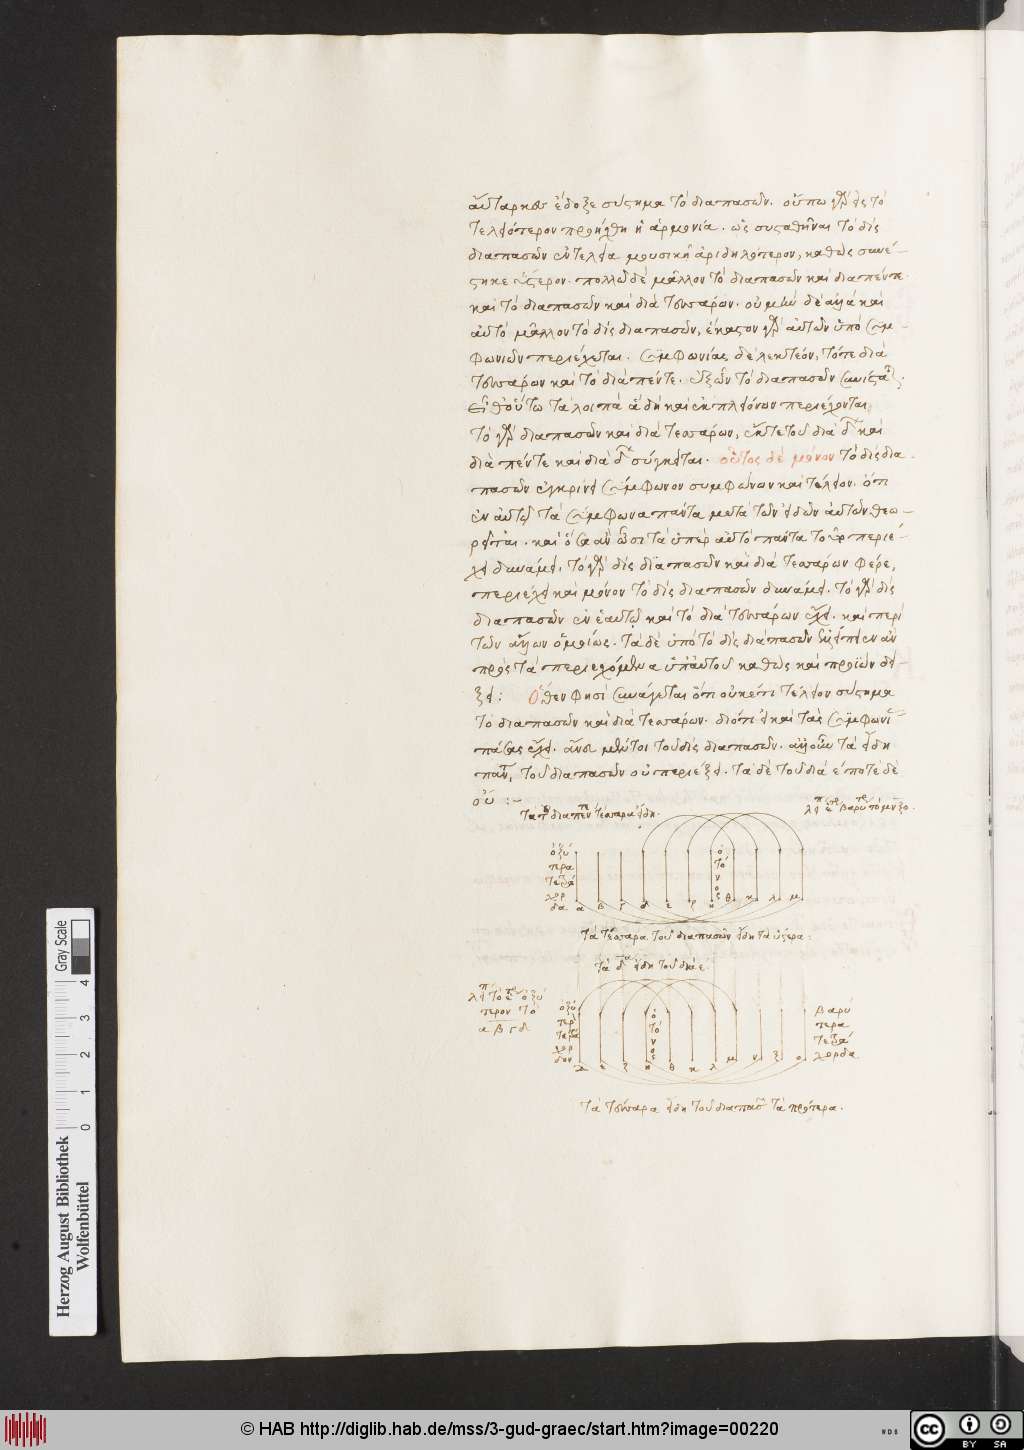 αὔταρκες ἔδοξε σύστημα τὸ διαπασῶν. οὔπω γὰρ εἰς τὸ
τελεώτερον προήχθη ἡ ἁρμονία. ὡς συσταθῆναι τὸ δὶς
διαπασῶν ἐντελεῖ μουσικῇ ἀριδηλότερον, καθὼς συνέ-
στηκε ὕστερον. πολλῶ δὲ μᾶλλον τὸ διαπασῶν καὶ διαπέντε.
καὶ τὸ διαπασῶν καὶ διὰ τεσσάρων. οὐ μὴν δὲ ἀλλὰ καὶ
αὐτὸ μᾶλλον τὸ δὶς διαπασῶν, ἕκαστον γὰρ αὐτῶν ὑπὸ συμ-
φωνιῶν περιέχεται. συμφωνίας δὲ λεκτέον, τό τε διὰ
τεσσάρων καὶ τὸ διὰ πέντε. ἐξ ὧν τὸ διαπασῶν συνίσταται.
εἶθ' οὕτω τὰ λοιπὰ ἃ δὴ καὶ ἐκ πλειόνων περιέχονται,
τὸ γὰρ διαπασῶν καὶ διὰ τεσσάρων, ἔκ τε τοῦ διὰ δ καὶ
διὰ πέντε καὶ διὰ δ σύγκειται. οὗτος δὲ μόνον τὸ δὶς δια-
πασῶν ἐγκρίνει σύμφωνον συμφώνων καὶ τέλειον. ὅτι
ἐν αὐτῷ τὰ σύμφωνα πάντα μετὰ τῶν εἰδῶν αὐτῶν θεω-
ρεῖται. καὶ ὅσα ἂν ὦσι τὰ ὑπὲρ αὐτὸ πάντα περιέ-
χει δυνάμει. τὸ γὰρ δὶς διαπασῶν καὶ διὰ τεσσάρων φέρε,
περιέχει καὶ μόνον τὸ δὶς διαπασῶν δυνάμει. τὸ γὰρ δὶς
διαπασῶν ἐν ἑαυτῷ καὶ τὸ διὰ τεσσάρων ἔχει. καὶ περὶ
τῶν ἄλλων ὁμοίως. τὰ δὲ ὑπὸ τὸ δὶς διαπασῶν
πρὸς τὰ περιεχόμενα ὑπ' αὐτοῦ καθὼς καὶ προϊὼν δεί-
ξει: Ὅθεν φησὶ συνάγεται ὅτι οὐκ ἔστι τέλειον σύστημα
τὸ διαπασῶν καὶ διὰ τεσσάρων. διότι εἰ καὶ τὰς συμφωνί-
πάσας ἔχει. ἄνευ μέντοι τοῦ δὶς διαπασῶν. ἀλλ' οὖν τὰ εἴδη
πάντα, τοῦ διαπασῶν οὐ περιέξει. τὰ δὲ τοῦ διὰ ε ποτὲ δὲ
οὔ :~
τὰ τοῦ διαπέντε τέσσαρα εἴδη.
ὀξύ
τερα
τετρά
χορ
δα α β γ δ ε ζ η θ κ λ μ
ὁ τόνος
τὰ τέσσαρα τοῦ διαπασῶν εἴδη τὰ ὕστερα:
τὰ δ εἴδη τοῦ διὰ ε
λείπει τὸ ὀξύ
τερον τὸ
α β γ δ
ὀξύ
τερ
τετρά
χορ
δον
δ ε ζ η θ κ λ μ ν ξ ο
ὁ τόνος
βαρύ
τερα
τετρά
χορδα
τὰ τέσσαρα εἴδη τοῦ διαπασῶν τὰ πρότερα.
Gray Scale
0 1 2 3 4
Herzog August Bibliothek
Wolfenbüttel
© HAB http://diglib.hab.de/mss/3-gud-graec/start.htm?image=00220
WDB
cc BY SA